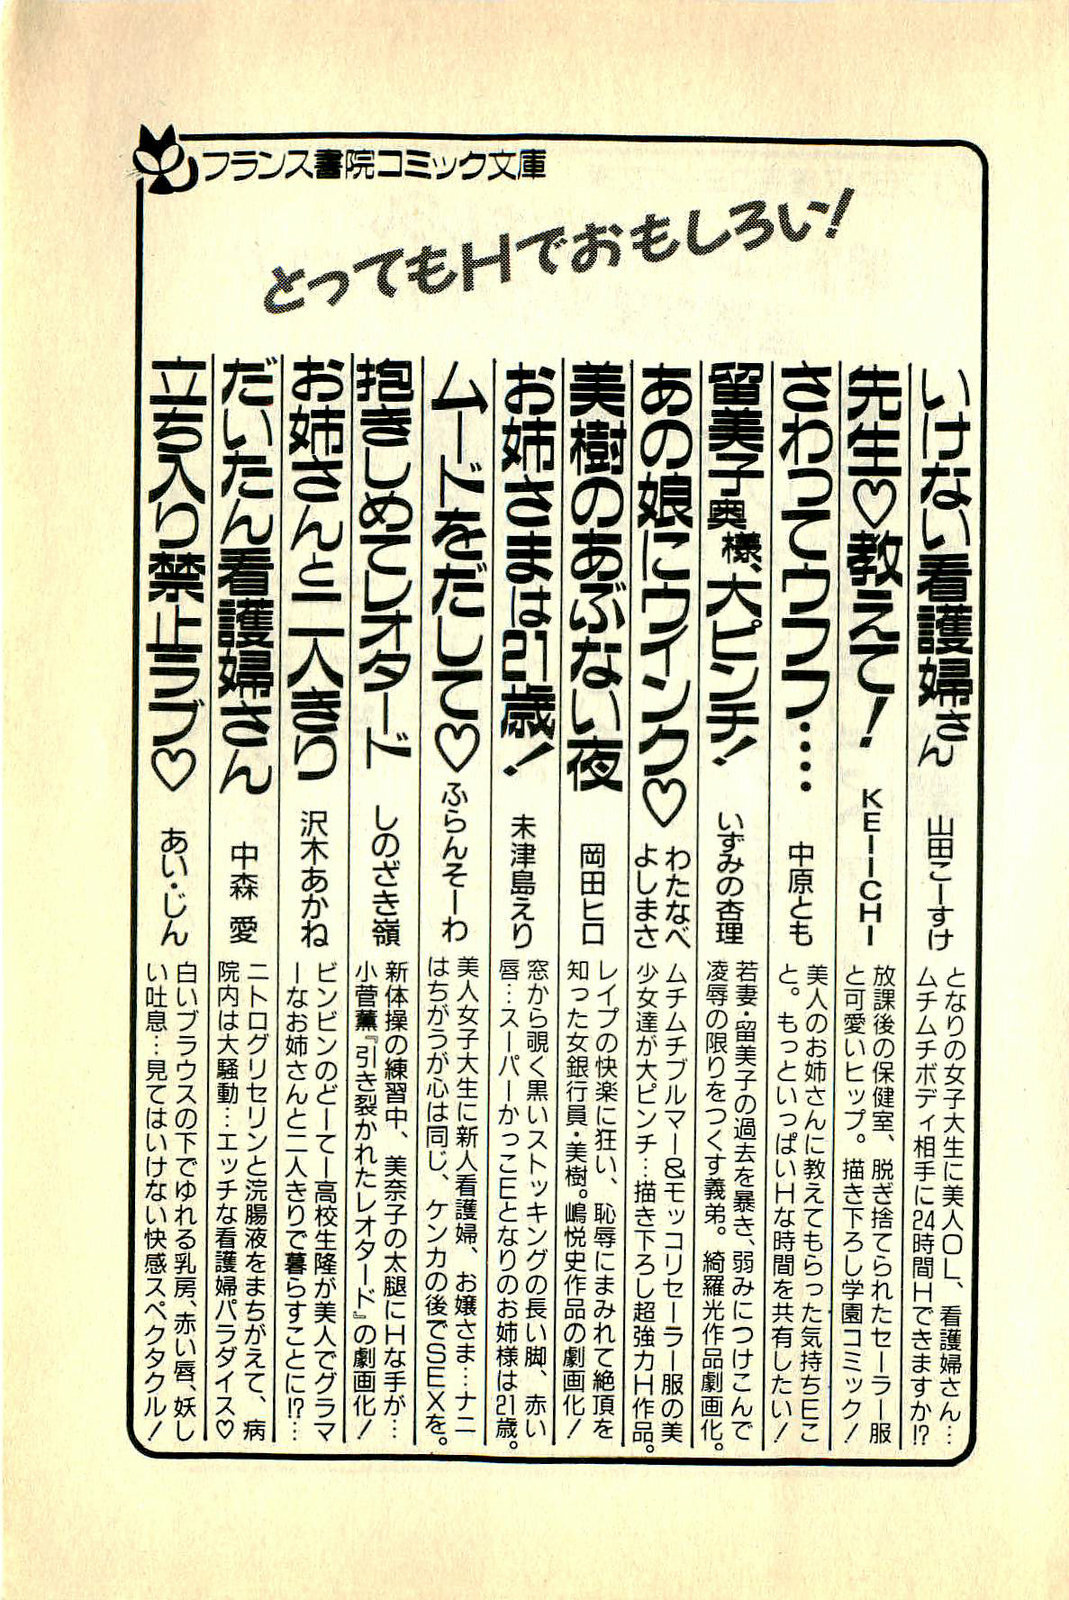 フランス書院コミック文庫
とってもHでおもしろい!
いけない看護婦さん
山田こーすけ
となりの女子大生に美人OL、看護婦さん…
ムチムチボディ相手に24時間Hできますか!?
先生♡教えて!
KEIICHI
放課後の保健室、脱ぎ捨てられたセーラー服
と可愛いヒップ。描き下ろし学園コミック!
さわってウフフ……
中原とも
美人のお姉さんに教えてもらった気持ちEこ
と。もっといっぱいHな時間を共有したい!
留美子奥様、大ピンチ!
いずみの杏理
若妻・留美子の過去を暴き、弱みにつけこんで
凌辱の限りをつくす義弟。綺羅光作品劇画化。
あの娘にウインク♡
わたなべ
よしまさ
ムチムチブルマー&モッコリセーラー服の美
少女達が大ピンチ…描き下ろし超強力H作品。
美樹のあぶない夜
岡田ヒロ
レイプの快楽に狂い、恥辱にまみれて絶頂を
知った女銀行員・美樹。嶋悦史作品の劇画化!
お姉さまは21歳!
未津島えり
窓から覗く黒いストッキングの長い脚、赤い
唇…スーパーかっこEとなりのお姉様は21歳。
ムードをだして♡
ふらんそーわ
美人女子大生に新人看護婦、お嬢さま…ナニ
はちがうが心は同じ、ケンカの後でSEXを。
抱きしめてレオタード
しのざき嶺
新体操の練習中、美奈子の太腿にHな手が…
小菅薫『引き裂かれたレオタード』の劇画化!
お姉さんと二人きり
沢木あかね
ビンビンのどーてー高校生隆が美人でグラマ
ーなお姉さんと二人きりで暮らすことに!?…
だいたん看護婦さん
中森 愛
ニトログリセリンと浣腸液をまちがえて、病
院内は大騒動…エッチな看護婦パラダイス♡
立ち入り禁止ラブ♡
あい・じん
白いブラウスの下でゆれる乳房、赤い唇、妖し
い吐息…見てはいけない快感スペクタクル!